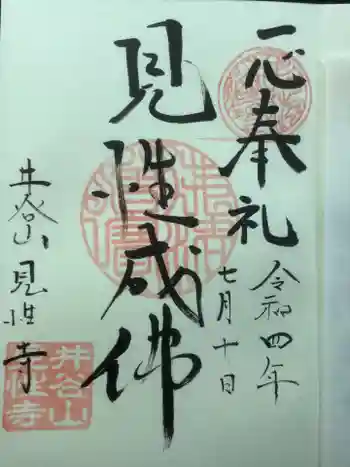 一心奉礼
令和四年
七月十日
見性成佛
井谷山見性寺
井谷山
見性寺